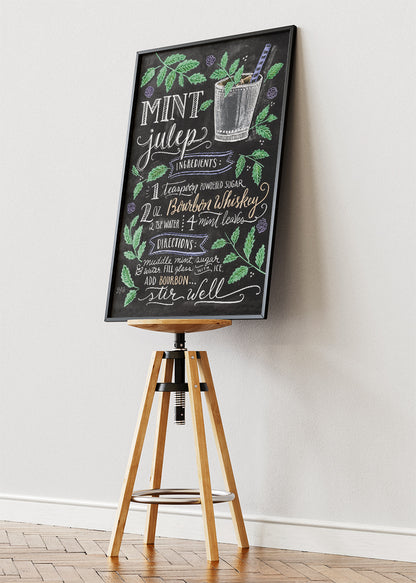 MINT
julep
INGREDIENTS:
1 teaspoon POWDERED SUGAR
2 OZ. Bourbon Whiskey
2 TSP WATER 4 mint leaves
DIRECTIONS:
muddle mint, sugar
& water. FILL glass WITH ICE,
ADD BOURBON...
stir well